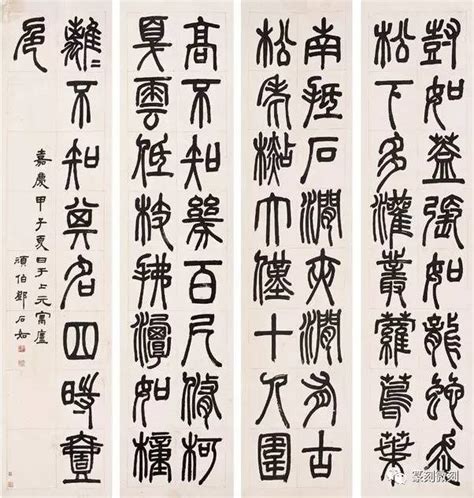 尌如蓋張如龍蛇走
松下多灌叢蘿蔦葉
南抵石澗夾澗有古
松老檆大僅十人圍
高不知幾百尺脩柯
戛雲低枝拂潭如幢
離〻不知其名四時壹
色
嘉慶甲子夏日于上元寓廬
頑伯鄧石如
篆刻微刻